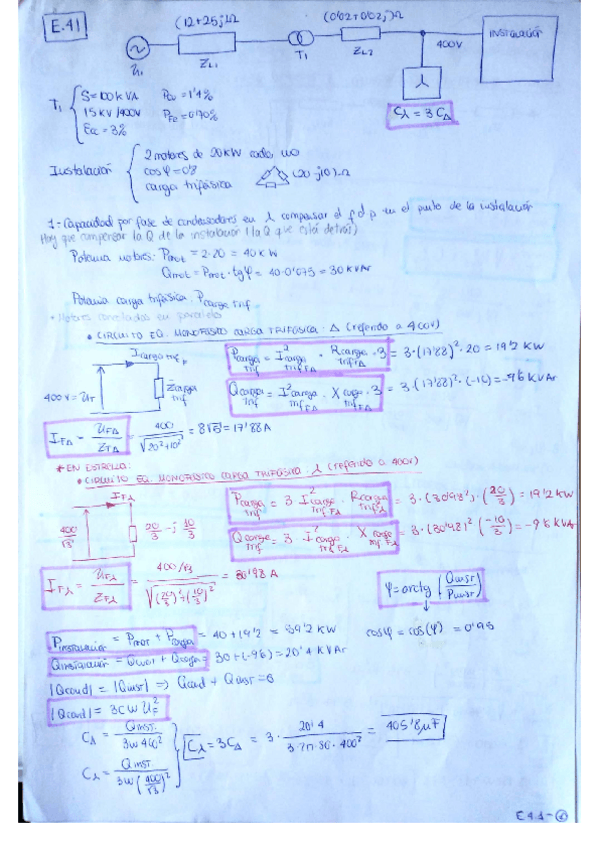 E.41
(12+25j)Ω
(0'02+0'02j)Ω
INSTALACIÓN
400V
U1
ZL1
T1
ZL2
λ
Cλ = 3CΔ
T1
S=100kVA Pcu=1'4%
15KV/400V PFe=0'70%
Ecc=3%
Instalación
2 motores de 20KW cada uno
cosφ=0'8
carga trifásica (20-j10)Ω
1- Capacidad por fase de condensadores en λ compensar el f d p en el punto de la instalación
Hay que compensar la Q de la instalación (la Q que está detrás)
Potencia motores: Pmot = 2·20 = 40KW
Qmot = Pmot·tgφ = 40·0'075 = 30KVAr
Potencia carga trifásica: Pcarga trif
• Motores conectados en paralelo
• CIRCUITO EQ. MONOFÁSICO CARGA TRIFÁSICA · Δ (referido a 400V)
Icarga trif
Pcarga trif = I²carga trif FΔ · Rcarga trif Δ · 3 = 3·(17'88)²·20 = 19'2 KW
Zcarga trif
400V = UT
Qcarga trif = I²carga trif FΔ · Xcarga trif Δ · 3 = 3·(17'88)²·(-10) = -9'6 KVAr
IFΔ = UFΔ/ZTΔ = 400/√20²+10² = 8√5 = 17'88A
* EN ESTRELLA:
• CIRCUITO EQ. MONOFÁSICO CARGA TRIFÁSICA · λ (referido a 400V)
IFλ
Pcarga trif = 3 I²carga trif Fλ · Rcarga trif Fλ = 3·(30'98²)·(20/3) = 19'2KW
400/√3
20/3 - j 10/3
Qcarga trif = 3 I²carga trif Fλ · Xcarga trif Fλ = 3·(30'98)²(-10/3) = -9'6 KVAr
IFλ = UFλ/ZFλ = 400/√3/√(20/3)²+(10/3)² = 30'98A
φ=arctg(Qinst/Pinst)
Pinstalación = Pmot + Pcarga = 40+19'2 = 59'2KW
cosφ = cos(φ) = 0'95
Qinstalación = Qmot + Qcarga = 30+(-9'6) = 20'4 KVAr
|Qcond| = |Qinst| => Qcond + Qinst = 0
|Qcond| = 3CωUF²
CΔ = Qinst/3ω400²
Cλ = Qinst/3ω(400/√3)²
Cλ = 3CΔ = 3· 20'4/3·2π·50·400² = 405'8μF
E4.1-①